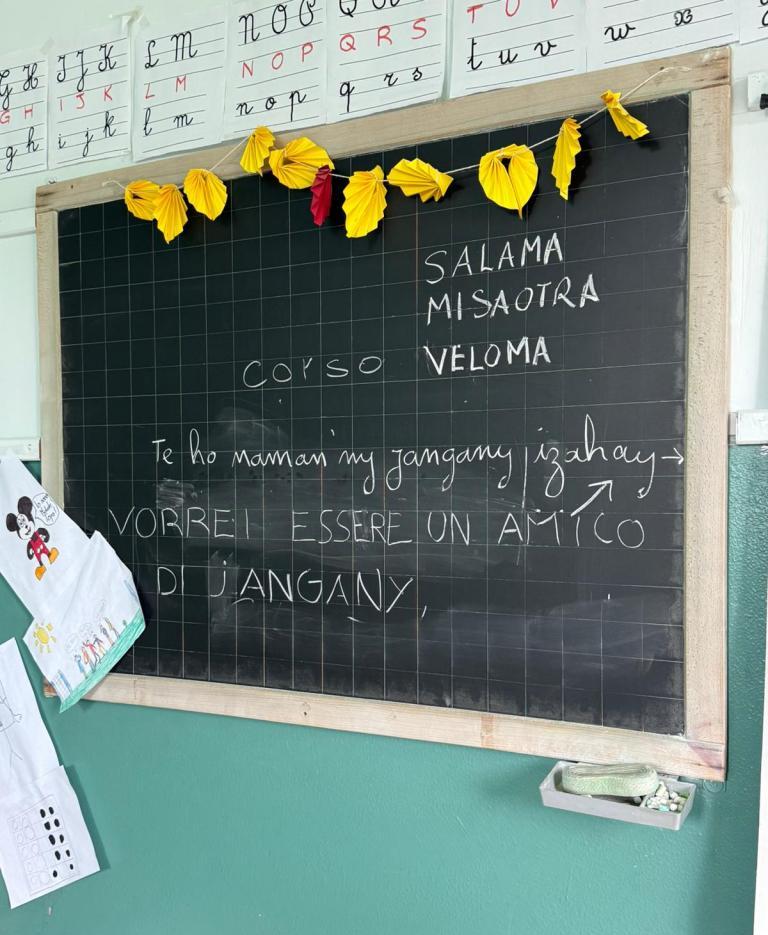 G H
G H
g h
I J K
I J K
i j k
L M
L M
l m
N O P
N O P
n o p
Q R S
Q R S
q r s
T U V
t u v
w x
SALAMA
MISAOTRA
CORSO VELOMA
Te ho naman'ny jangany izahay →
VORREI ESSERE UN AMICO
DI JANGANY,